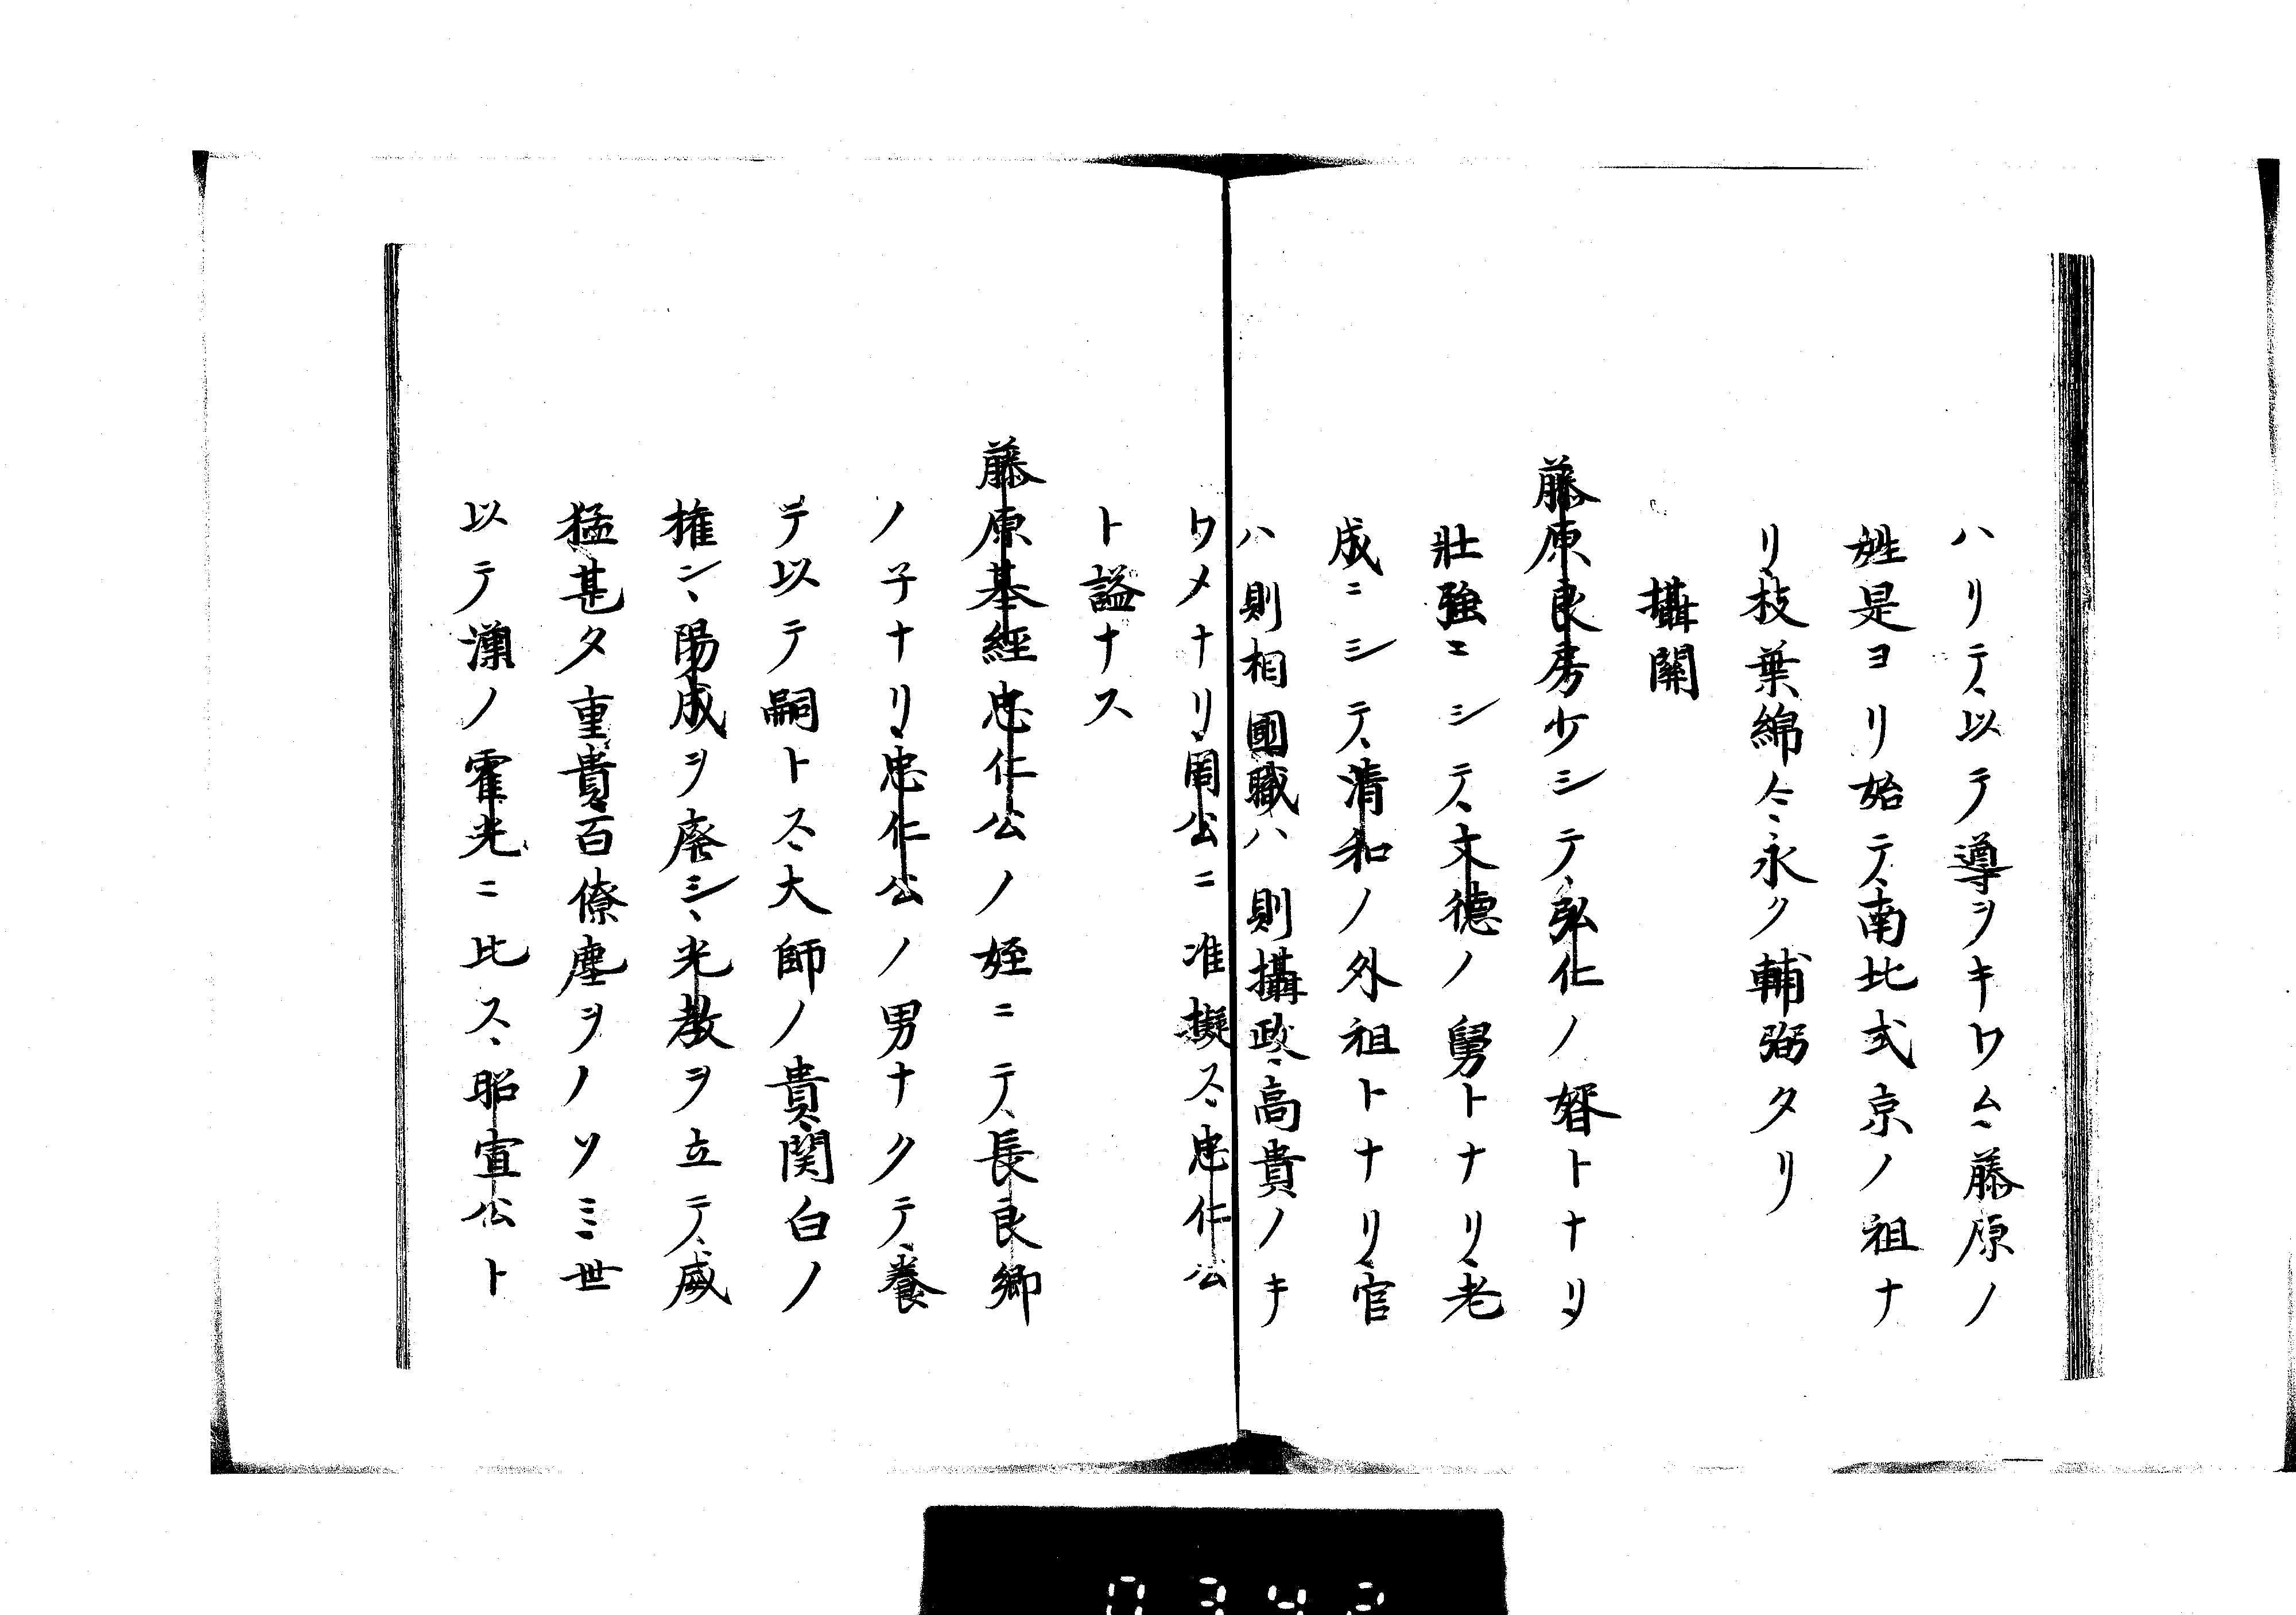 ハリテ、以テ導ヲキワム、藤原ノ
姓是ヨリ始テ、南北式京ノ祖ナ
リ、枝葉綿々、永ク輔弼タリ
攝関
藤原良房少シテ、弘仁ノ婿トナリ、
壯強ニシテ、文徳ノ舅トナリ、老
成ニシテ、清和ノ外祖トナリ、官
ハ則相國、職ハ則攝政、高貴ノキ
ワメナリ、周公ニ准擬ス、忠仁公
ト謚ナス
藤原基經忠仁公ノ姪ニテ、長良卿
ノ子ナリ、忠仁公ノ男ナクテ、養
テ以テ嗣トス、大師ノ貴、関白ノ
權、陽成ヲ廃シ、光孝ヲ立テ、威
猛甚タ重貴、百僚塵ヲノソミ、世
以テ漢ノ霍光ニ比ス、昭宣公ト
0342